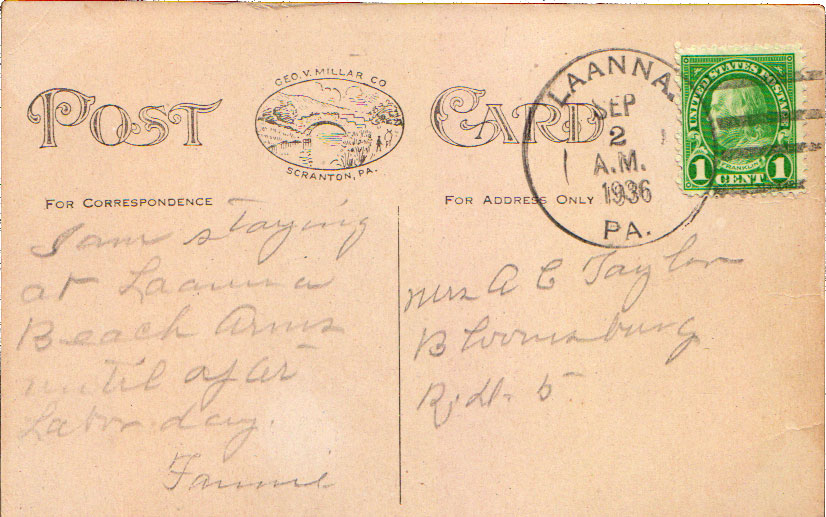 POST CARD
GEO. V. MILLAR CO
SCRANTON, PA.
FOR CORRESPONDENCE
FOR ADDRESS ONLY
LAANNA.
SEP
2
A.M.
1936
PA.
UNITED STATES POSTAGE
FRANKLIN
1 CENT 1
I am staying
at Laanna
Beach Arms
until after
Labor day.
Fannie
Mrs A C Taylor
Bloomsburg
R.d. 5